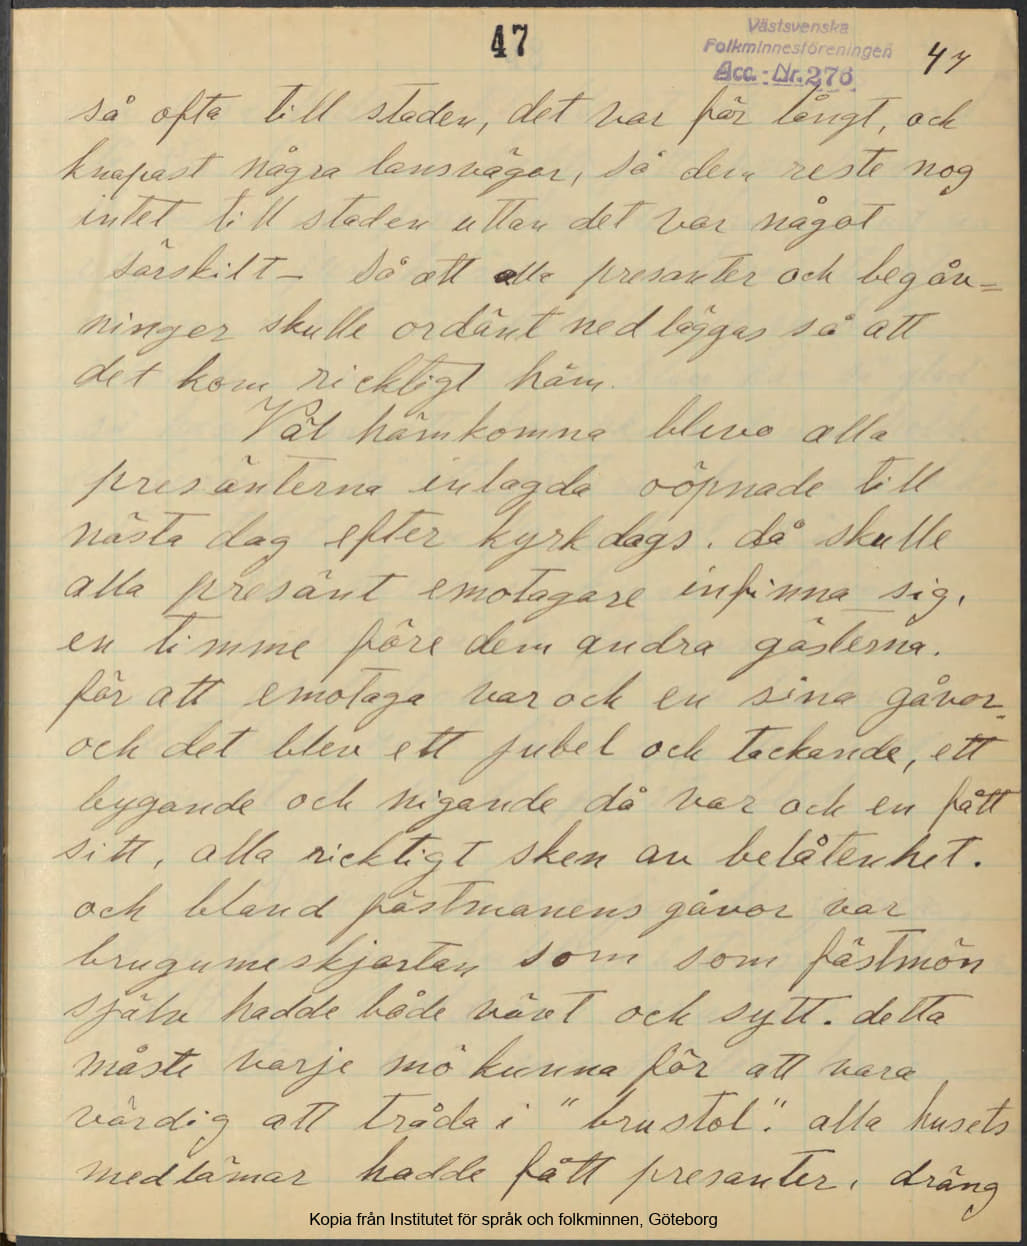 47
Västsvenska
Folkminnesföreningen
Acc.-Nr. 276
47
så ofta till staden, det var för långt, och
knapast några lansvägar, så dem reste nog
intet till staden uttan det var något
särskilt – Så att alla presanter och begåv=
ninger skulle ordänt nedläggas så att
det kom ricktigt häm.
Väl hämkomna blevo alla
presänterna inlagda oöpnade till
nästa dag efter kyrkdags. då skulle
alla presänt emotagare infinna sig,
en timme före dem andra gästerna.
för att emotaga var och en sina gåvor
och det blev ett jubel och tackande, ett
bygande och nigande då var och en fått
sitt, alla ricktigt sken av belåtenhet.
och bland fästmanens gåvor var
brugumeskjortan som som fästmön
själv hadde både vävt och sytt. detta
måste varje mö kunna för att vara
värdig att träda i "brustol". alla husets
medlämar hadde fått presanter, dräng
Kopia från Institutet för språk och folkminnen, Göteborg